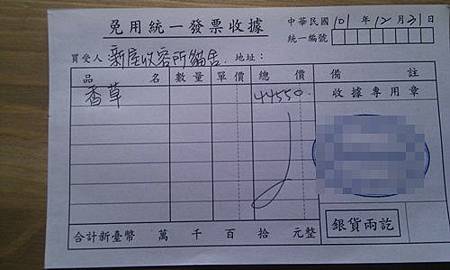 免用統一發票收據
中華民國101年12月31日
統一編號
買受人 新屋收容所貓舍 地址:
品名 數量 單價 總價 備註
香草 44550 收據專用章
銀貨兩訖
合計新臺幣 萬 千 百 拾 元整